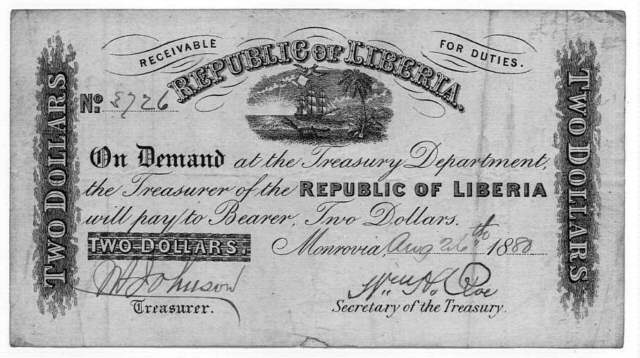 RECEIVABLE FOR DUTIES.
REPUBLIC OF LIBERIA.
No. 3726
TWO DOLLARS
TWO DOLLARS
On Demand at the Treasury Department,
the Treasurer of the REPUBLIC OF LIBERIA
will pay to Bearer, Two Dollars.
TWO DOLLARS. Monrovia, Aug 26th 1880
Johnson
Wm H. Roe
Treasurer. Secretary of the Treasury.